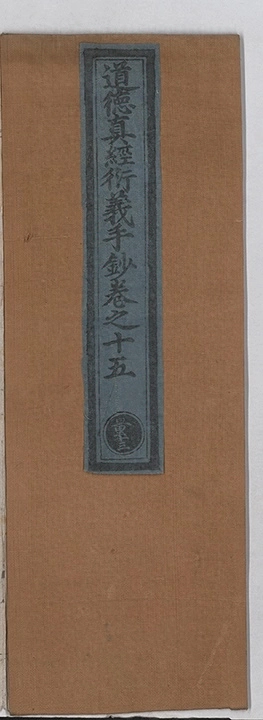 道德真經衍義手鈔卷之十五